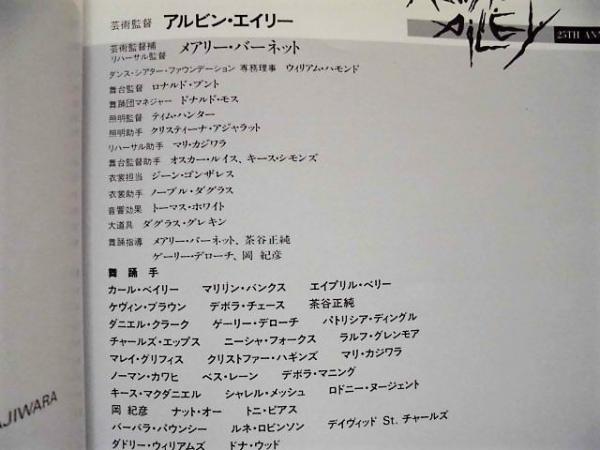 AILEY
25TH ANN
芸術監督 アルビン・エイリー
芸術監督補
リハーサル監督 メアリー・バーネット
ダンス・シアター・ファウンデーション 専務理事 ウィリアム・ハモンド
舞台監督 ロナルド・ブント
舞踊団マネジャー ドナルド・モス
照明監督 ティム・ハンター
照明助手 クリスティーナ・アジャラット
リハーサル助手 マリ・カジワラ
舞台監督助手 オスカー・ルイス、キース・シモンズ
衣裳担当 ジーン・ゴンザレス
衣裳助手 ノーブル・ダグラス
音響効果 トーマス・ホワイト
大道具 ダグラス・グレキン
舞踊指導 メアリー・バーネット、茶谷正純
ゲーリー・デローチ、岡 紀彦
舞踊手
カール・ベイリー マリリン・バンクス エイプリル・ベリー
ケヴィン・ブラウン デボラ・チェース 茶谷正純
ダニエル・クラーク ゲーリー・デローチ パトリシア・ディングル
チャールズ・エップス ニーシャ・フォークス ラルフ・グレンモア
マレイ・グリフィス クリストファー・ハギンズ マリ・カジワラ
ノーマン・カワヒ ベス・レーン デボラ・マニング
キース・マクダニエル シャレル・メッシュ ロドニー・ヌージェント
岡 紀彦 ナット・オー トニ・ピアス
バーバラ・パウンシー ルネ・ロビンソン デイヴィッド St. チャールズ
ダドリー・ウィリアムズ ドナ・ウッド
AJIWARA